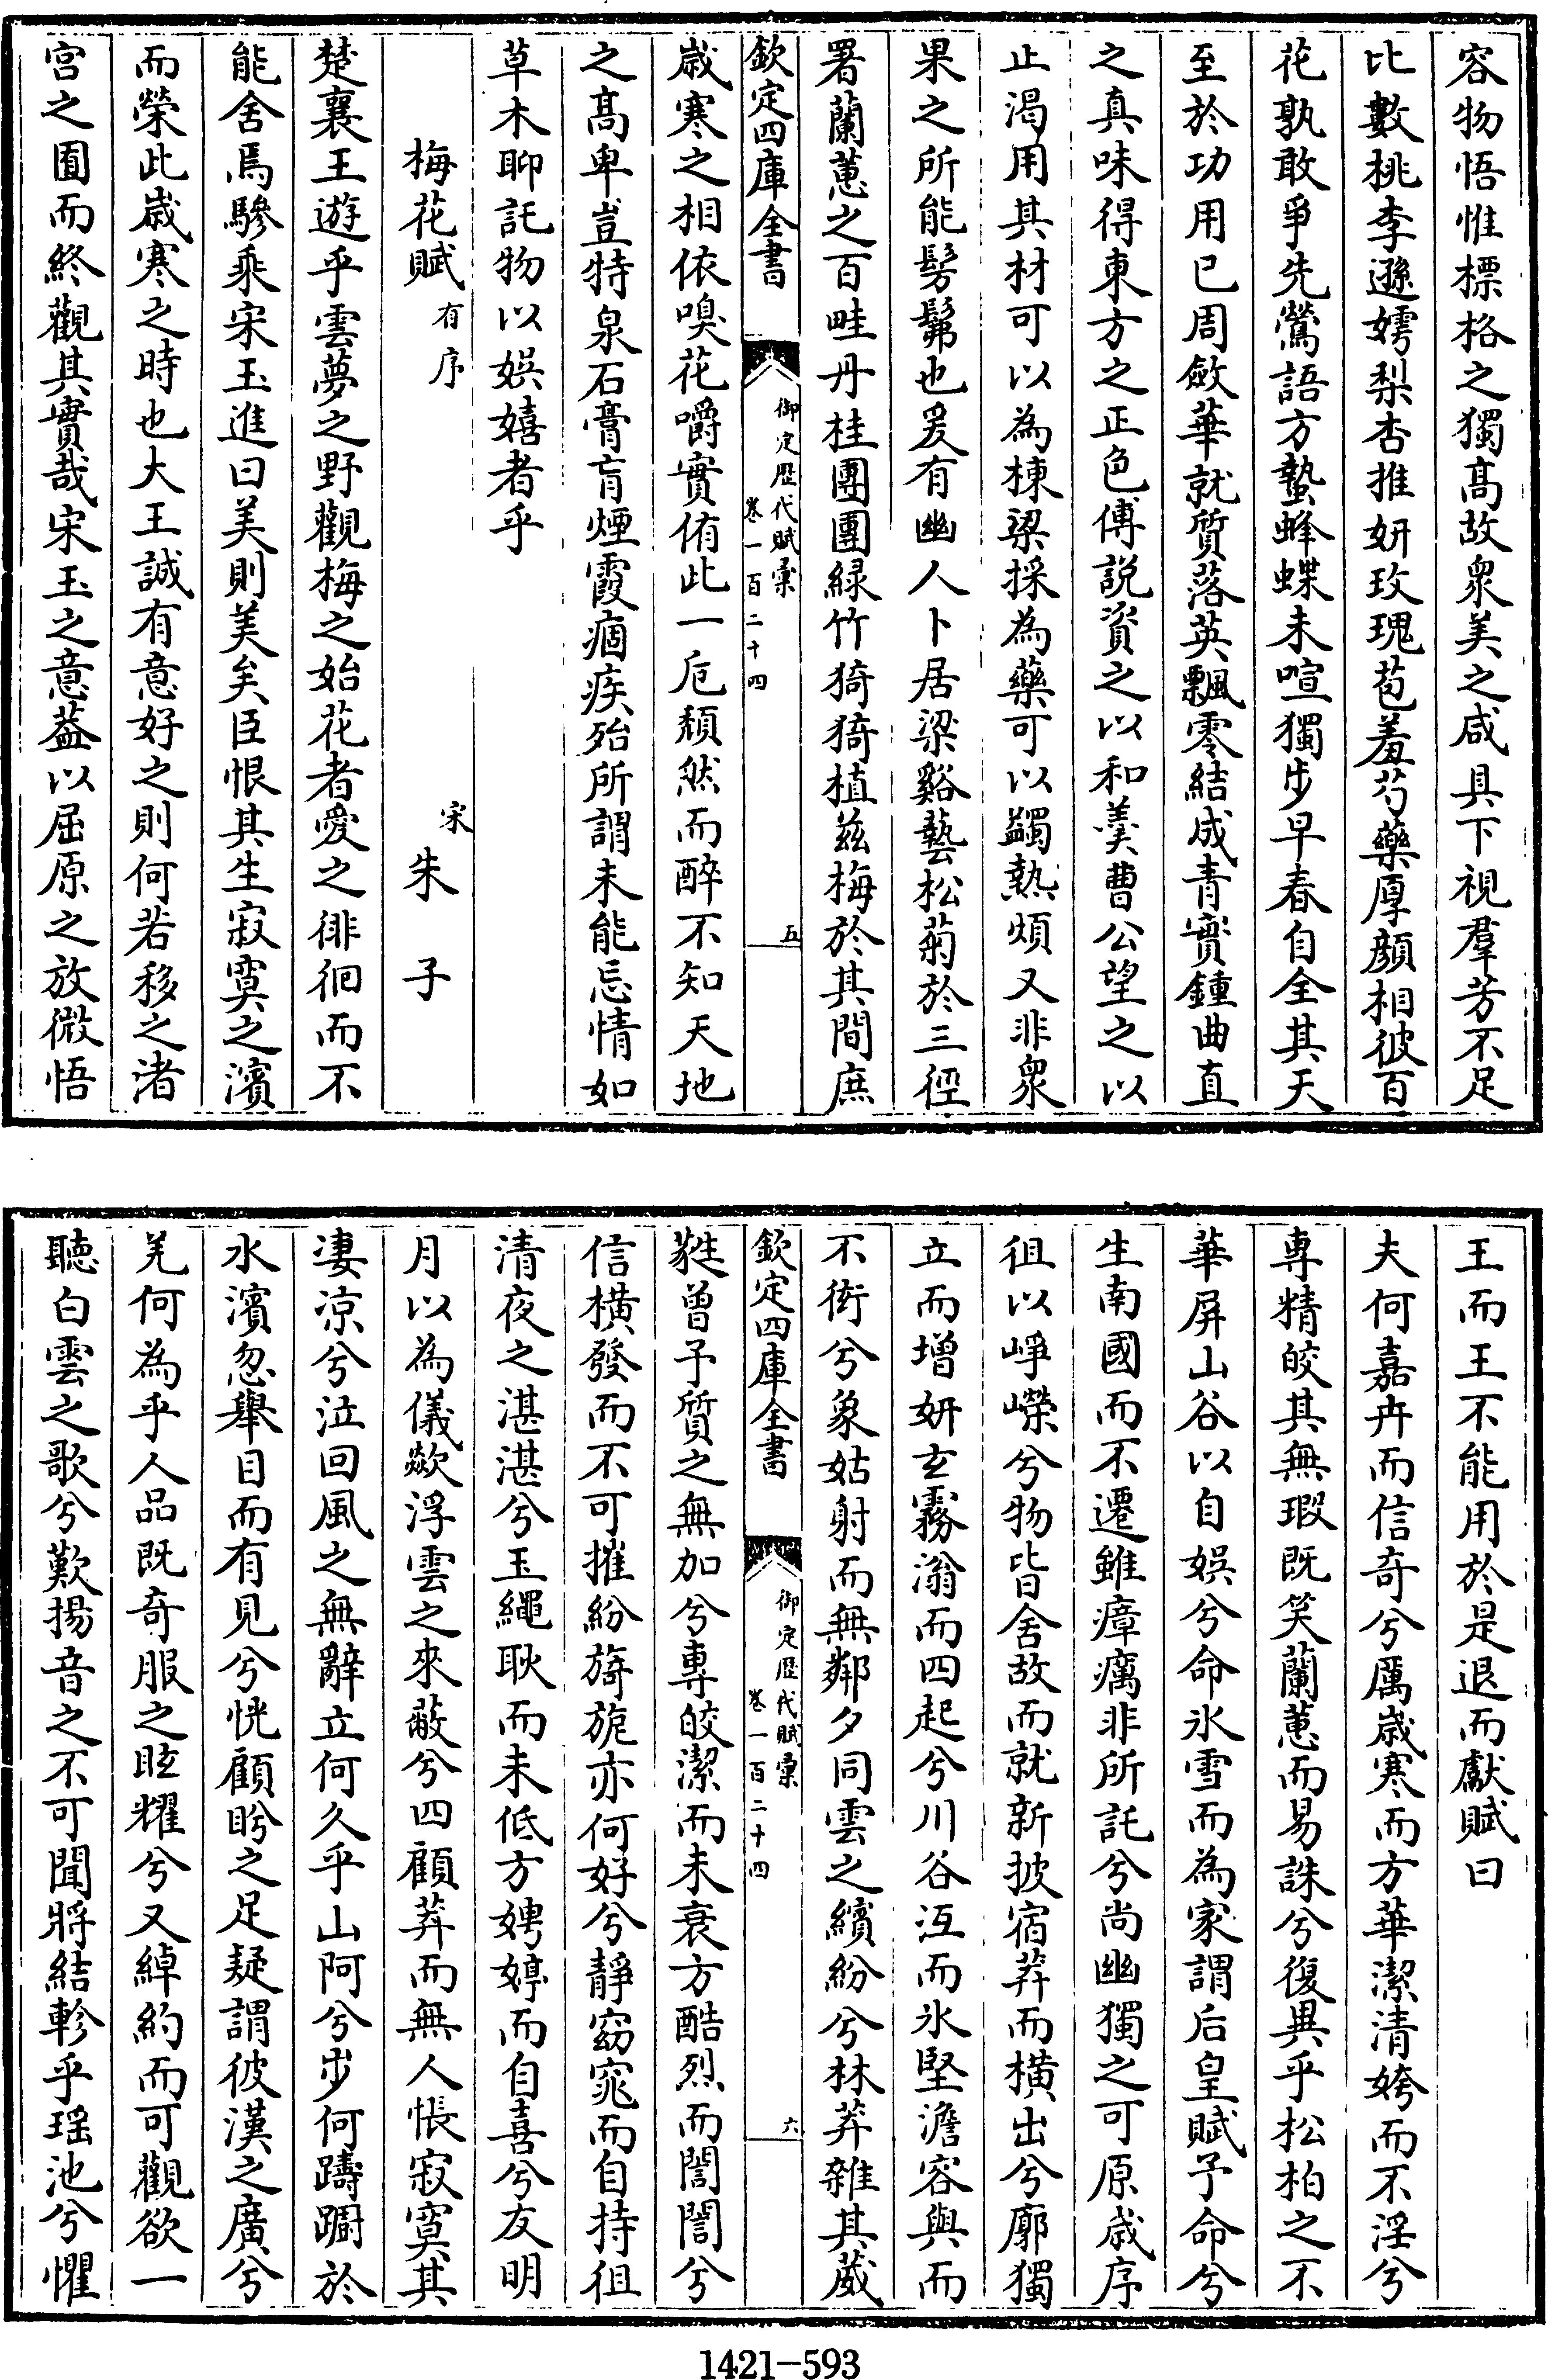 容物悟惟標格之獨高故衆美之咸具下視羣芳不足
比數桃李遜嫮梨杏推妍玫瑰苞羞芍藥厚顔相彼百
花孰敢爭先鶯語方蟄蜂蝶未喧獨步早春自全其天
至於功用已周斂華就質落英飄零結成青實鍾曲直
之真味得東方之正色傅説資之以和羮曹公望之以
止渇用其材可以為棟梁採為藥可以蠲熱煩又非衆
果之所能髣髴也爰有幽人卜居梁谿藝松菊於三徑
署蘭蕙之百畦丹桂團團緑竹猗猗植兹梅於其間庶
欽定四庫全書
御定歴代賦彙
卷一百二十四
五
歳寒之相依嗅花嚼實侑此一卮頹然而醉不知天地
之髙卑豈特泉石膏肓煙霞痼疾殆所謂未能忘情如
草木聊託物以娯嬉者乎
梅花賦有序
宋朱子
楚襄王遊乎雲夢之野觀梅之始花者愛之徘徊而不
能舍焉驂乘宋玉進曰美則美矣臣恨其生寂寞之濱
而榮此嵗寒之時也大王誠有意好之則何若移之渚
宫之囿而終觀其實哉宋玉之意葢以屈原之放微悟
王而王不能用於是退而獻賦曰
夫何嘉卉而信奇兮厲嵗寒而方華潔清姱而不淫兮
専精皎其無瑕既笑蘭蕙而易誅兮復異乎松柏之不
華屏山谷以自娯兮命氷雪而為家謂后皇賦予命兮
生南國而不遷雖瘴癘非所託兮尚幽獨之可原嵗序
徂以崢嶸兮物皆舍故而就新披宿莽而横出兮廓獨
立而增妍玄霧滃而四起兮川谷沍而氷堅澹容與而
不衒兮象姑射而無鄰夕同雲之繽紛兮林莽雜其葳
欽定四庫全書
御定歴代賦彙
卷一百二十四
六
蕤曽予質之無加兮專皎潔而未衰方酷烈而誾誾兮
信横發而不可摧紛旖旎亦何好兮靜窈窕而自持徂
清夜之湛湛兮玉繩耿而未低方娉婷而自喜兮友明
月以為儀歘浮雲之來蔽兮四顧莽而無人悵寂寞其
凄凉兮泣回風之無辭立何久乎山阿兮步何躊躕於
水濱忽舉目而有見兮恍顧盻之足疑謂彼漢之廣兮
羌何為乎人品既竒服之眩耀兮又綽約而可觀欲一
聽白雲之歌兮歎揚音之不可聞將結軫乎瑶池兮懼
1421-593